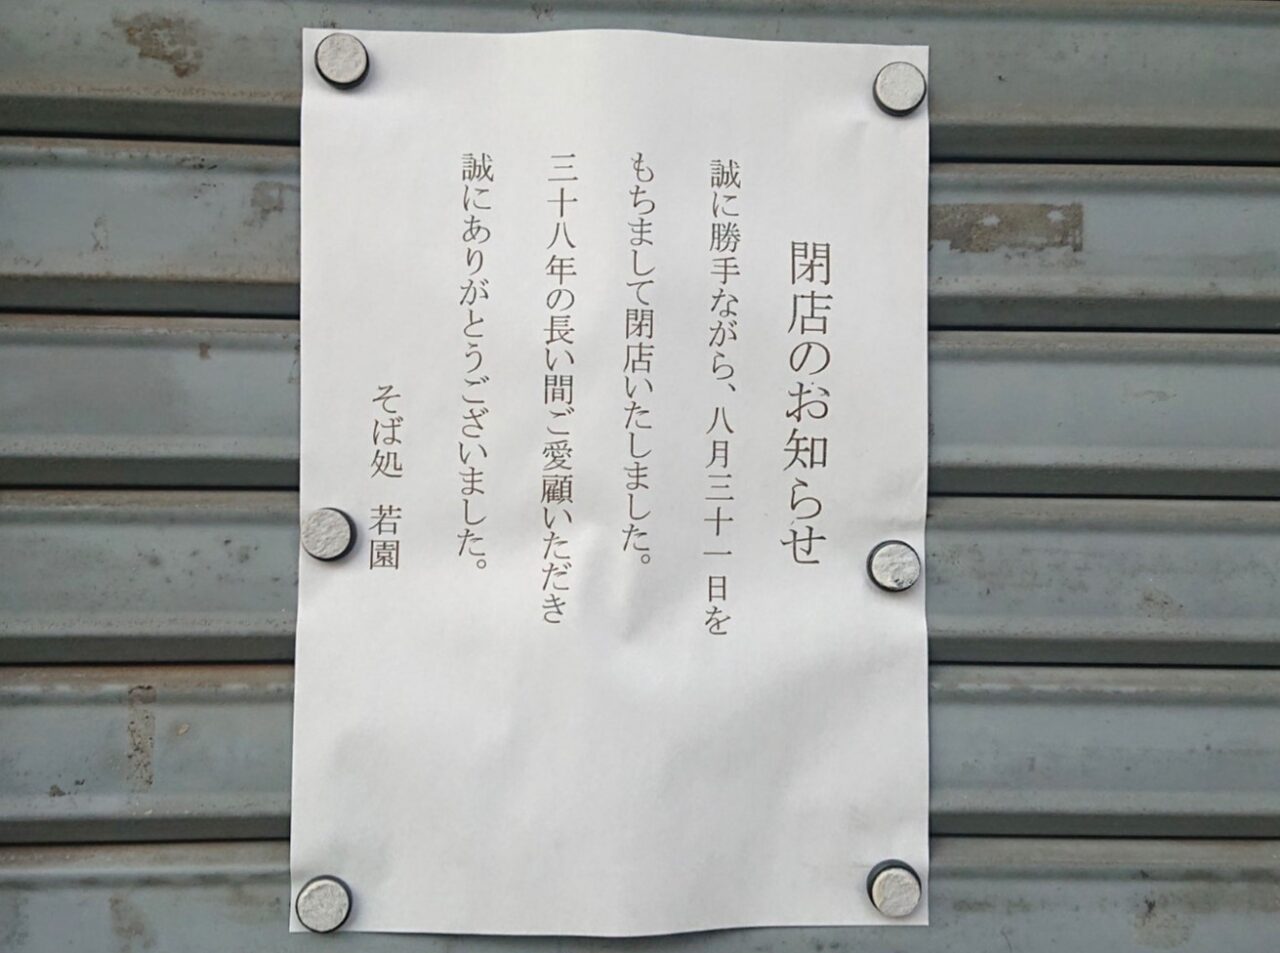 閉店のお知らせ
誠に勝手ながら、八月三十一日を
もちまして閉店いたしました。
三十八年の長い間ご愛顧いただき
誠にありがとうございました。
そば処　若園